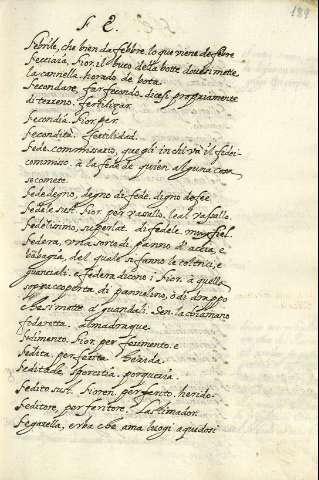 F E.
189
Febrile, che vien da febbre. lo que viene de febre
Fecciaia, Fior. il buco della botte dove si mette
la cannella. horado de bota
Fecondare, far fecondo. dicesi propriamente
di terreno. fertilizar
Fecondia Fior. per
Fecondità. fertilidad.
Fede. commissario, que gli in chi va il fidei-
commisso. à la fede de quien alguna cosa
se comete.
Fededegno, degno di fede. digno de fee
Fedele sust. Fior. per vasallo. leal vassallo.
Fedelissimo, superlat. di fedele. muy fiel.
Federa, una sorte di panno d'accia, e
babagia, del quale si fanno le coltrici, e
guanciali. e federa dicono i Fior. à quella
sopracoperta di pannelino, ò di drappo
che si mette a guanciali. Sen. la chiamano
foderetta. almadraque.
Fedimento. Fior. per ferimento. e
Fedita, per ferita. herida.
Feditade. sporcitia. porqueria.
Fedito sust. Fioren. per ferito. herido.
Feditore, per feritore. Lastimador.
Fegatella, erba che ama luogi aquidosi